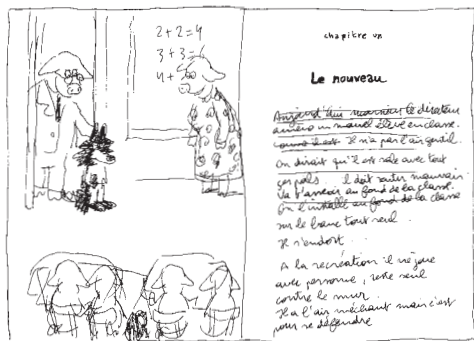 2+2=4
3+3=6
4+
chapitre un
Le nouveau
Aujourd'hui le directeur
amène un nouvel élève en classe.
Il n'a pas l'air gentil.
On dirait qu'il est sale avec tout
ces poils il doit sentir mauvais.
Va t'asseoir au fond de la classe.
On l'installe au fond de la classe
sur le banc tout seul.
Il s'endort.
A la recréation il ne joue
avec personne, reste seul
contre le mur.
Il a l'air méchant mais c'est
pour se défendre